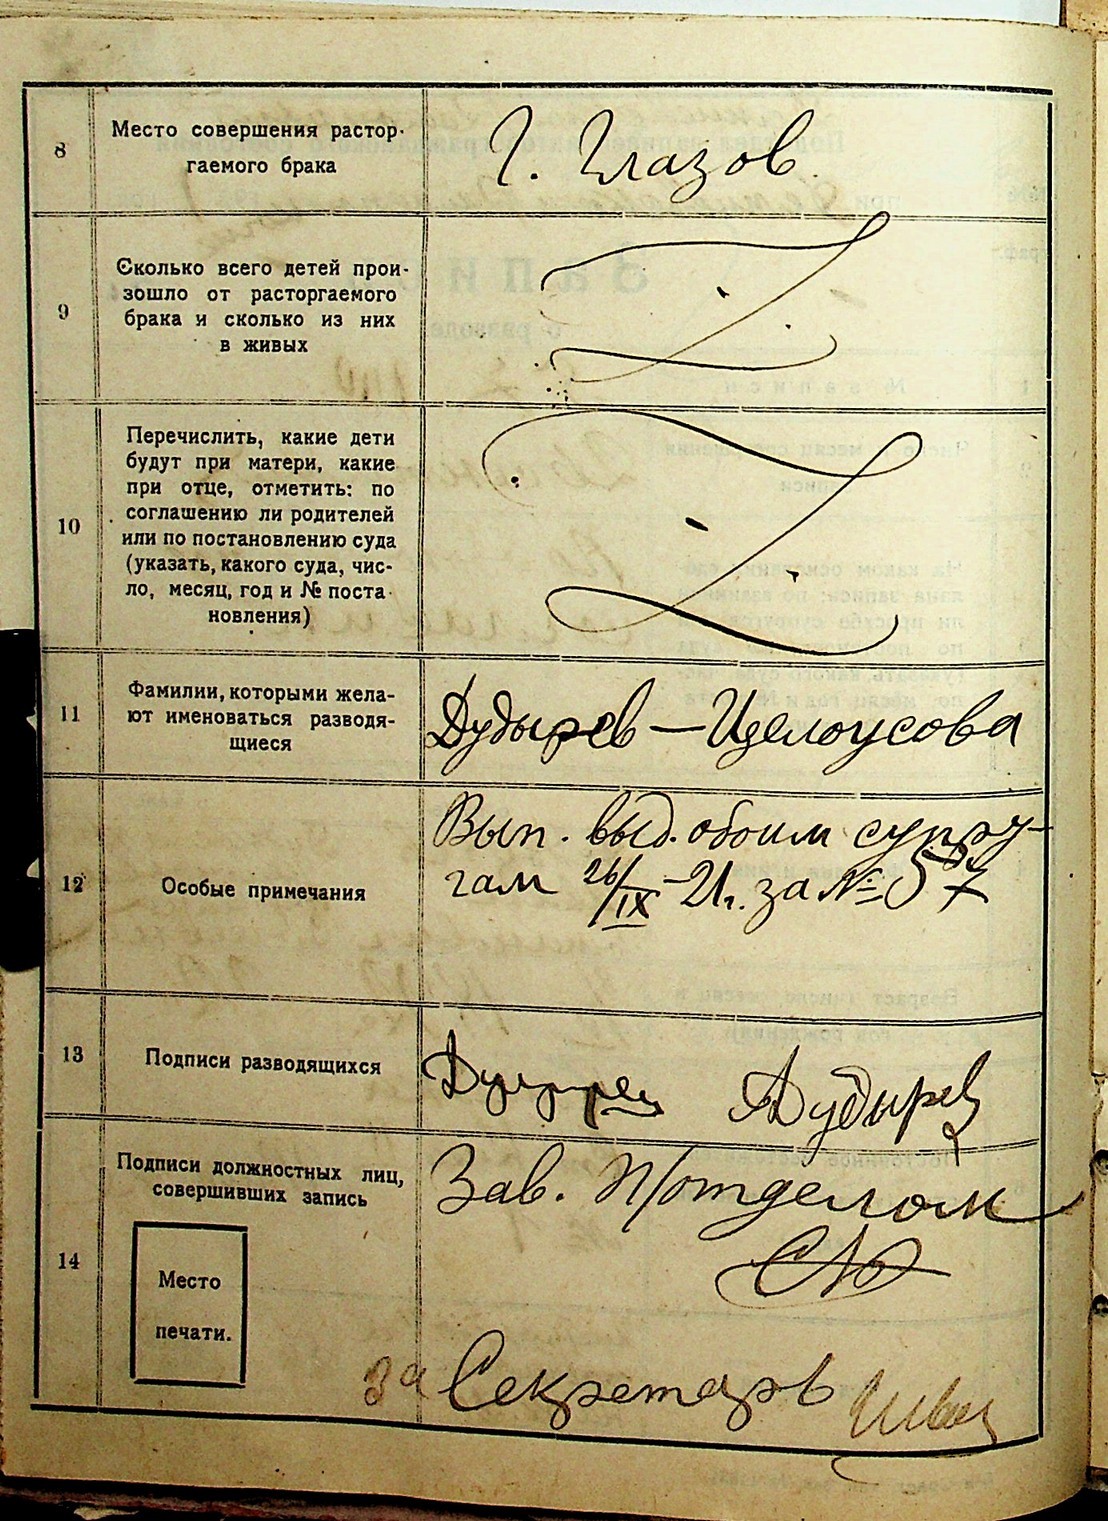 8
Место совершения растор-
гаемого брака
Г. Глазов
9
Сколько всего детей прои-
зошло от расторгаемого
брака и сколько из них
в живых
10
Перечислить, какие дети
будут при матери, какие
при отце, отметить: по
соглашению ли родителей
или по постановлению суда
(указать, какого суда, чис-
ло, месяц, год и № поста-
новления)
11
Фамилии, которыми жела-
ют именоваться разводя-
щиеся
Дудырев — Целоусова
12
Особые примечания
Вып. выд. обоим супру-
гам 26/IX-21г. за № 57
13
Подписи разводящихся
Дудырев
14
Подписи должностных лиц,
совершивших запись
Место
печати.
Зав. П/отделом
за Секретарь